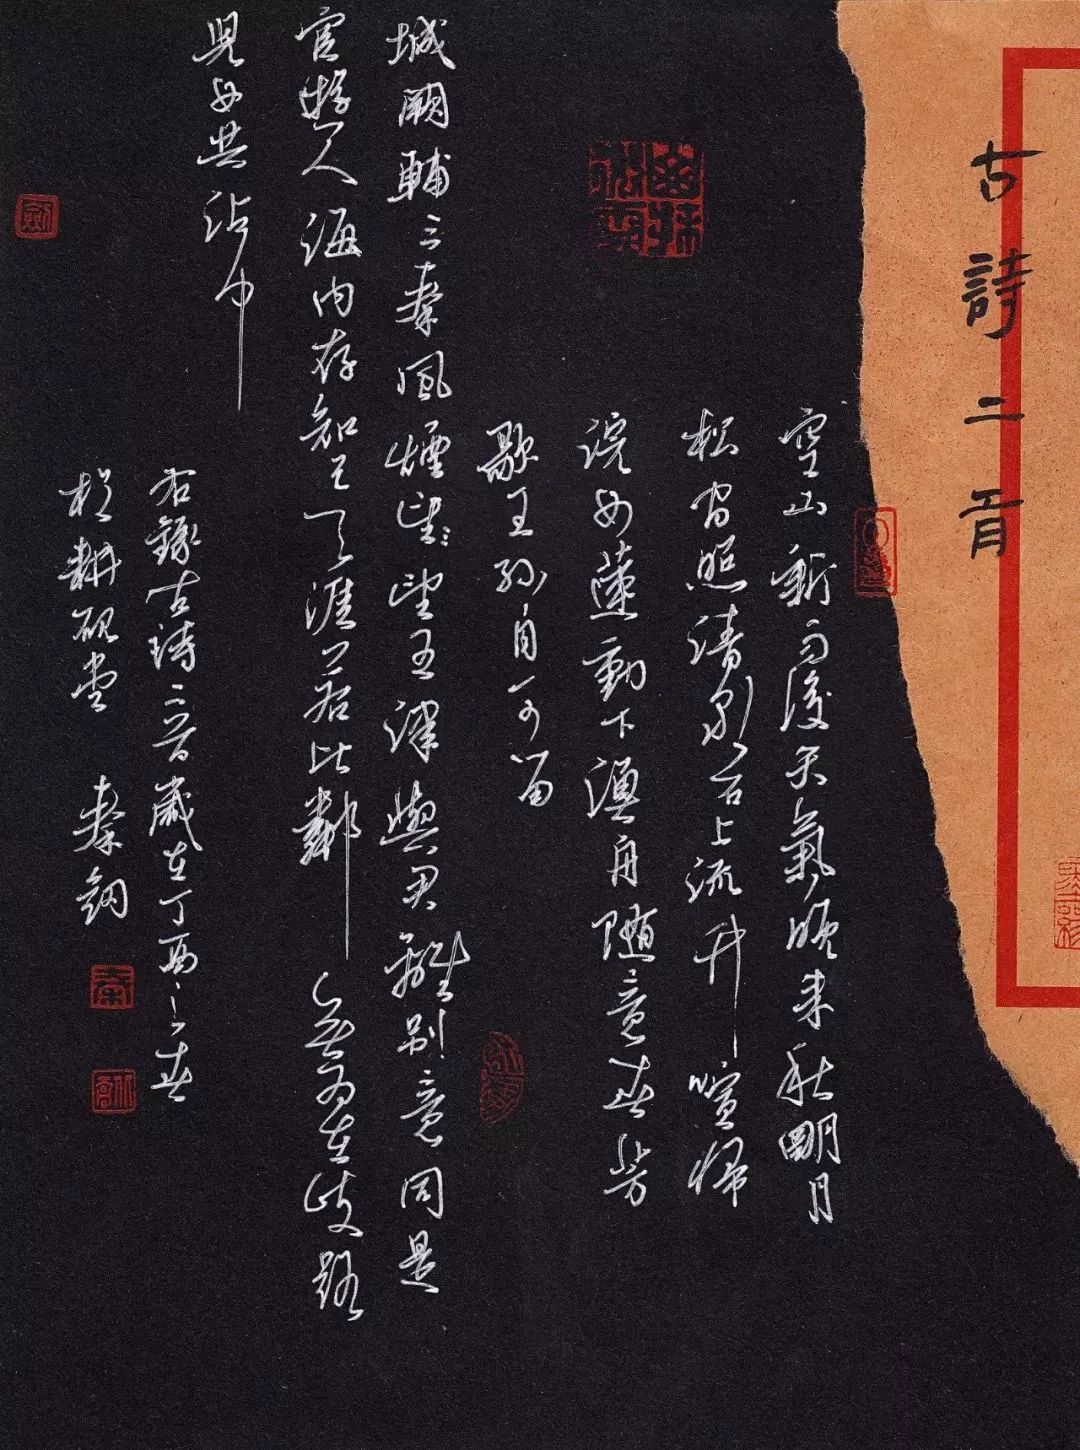 古詩二首
空山新雨後天氣晚来秋明月
松間照清泉石上流竹喧歸
浣女蓮動下漁舟隨意春芳
歇王孫自可留
城闕輔三秦風煙望望五津與君離別意同是
宦游人海内存知己天涯若比鄰無為在歧路
兒女共沾巾
右錄古詩二首歲在丁酉之春
於耕硯堂 秦
秦